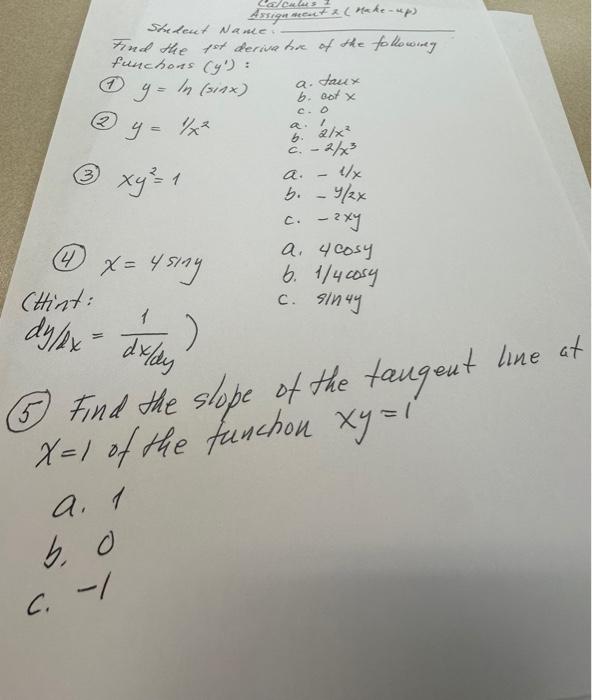 Calculus 1
Assignment 2 (Make-up)
Student Name:
Find the 1st derivative of the following
functions (y'):
① y = ln (sinx) a. tanx
b. cot x
c. 0
② y = 1/x² a. 1
b. 2/x²
c. -2/x³
③ xy² = 1 a. - 1/x
b. - y/2x
c. - 2xy
④ x = 4 siny a. 4cosy
b. 1/4cosy
c. sin4y
(Hint:
dy/dx = 1/(dx/dy) )
⑤ Find the slope of the tangent line at
x=1 of the function xy=1
a. 1
b. 0
c. -1